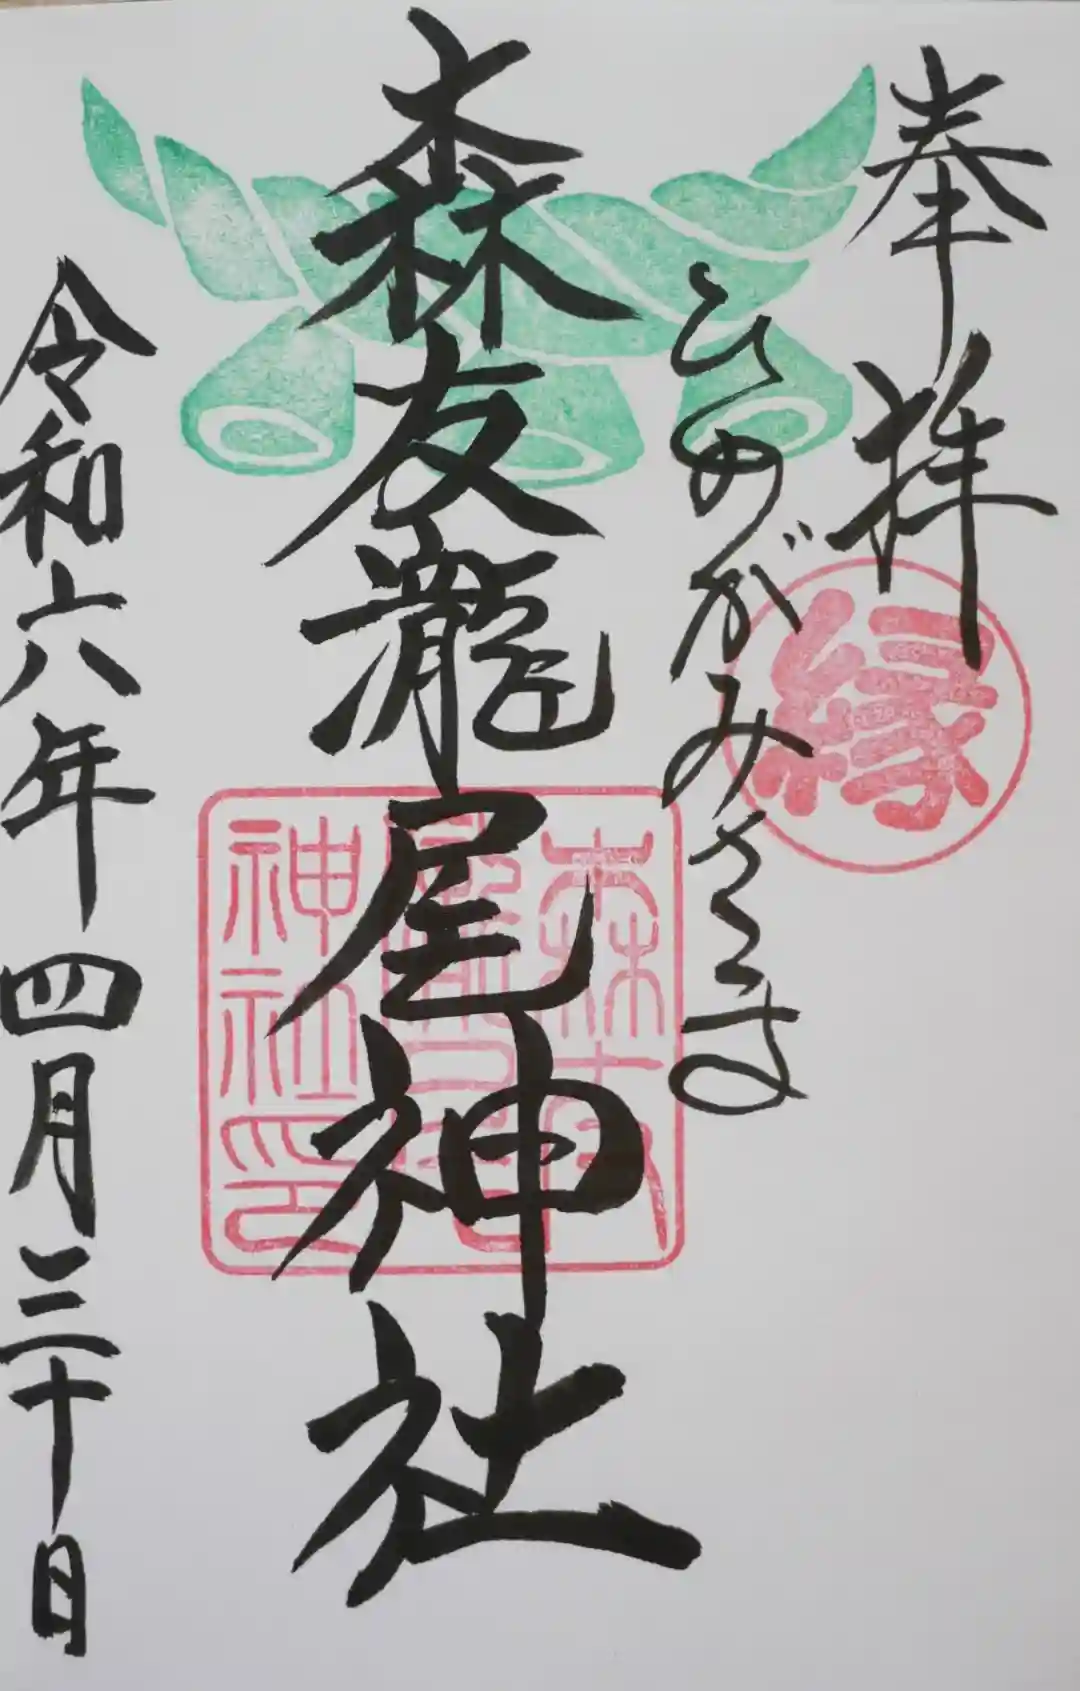 奉拝
縁
ひめがみさま
森友瀧尾神社
森友
瀧尾
神社印
令和六年四月三十日